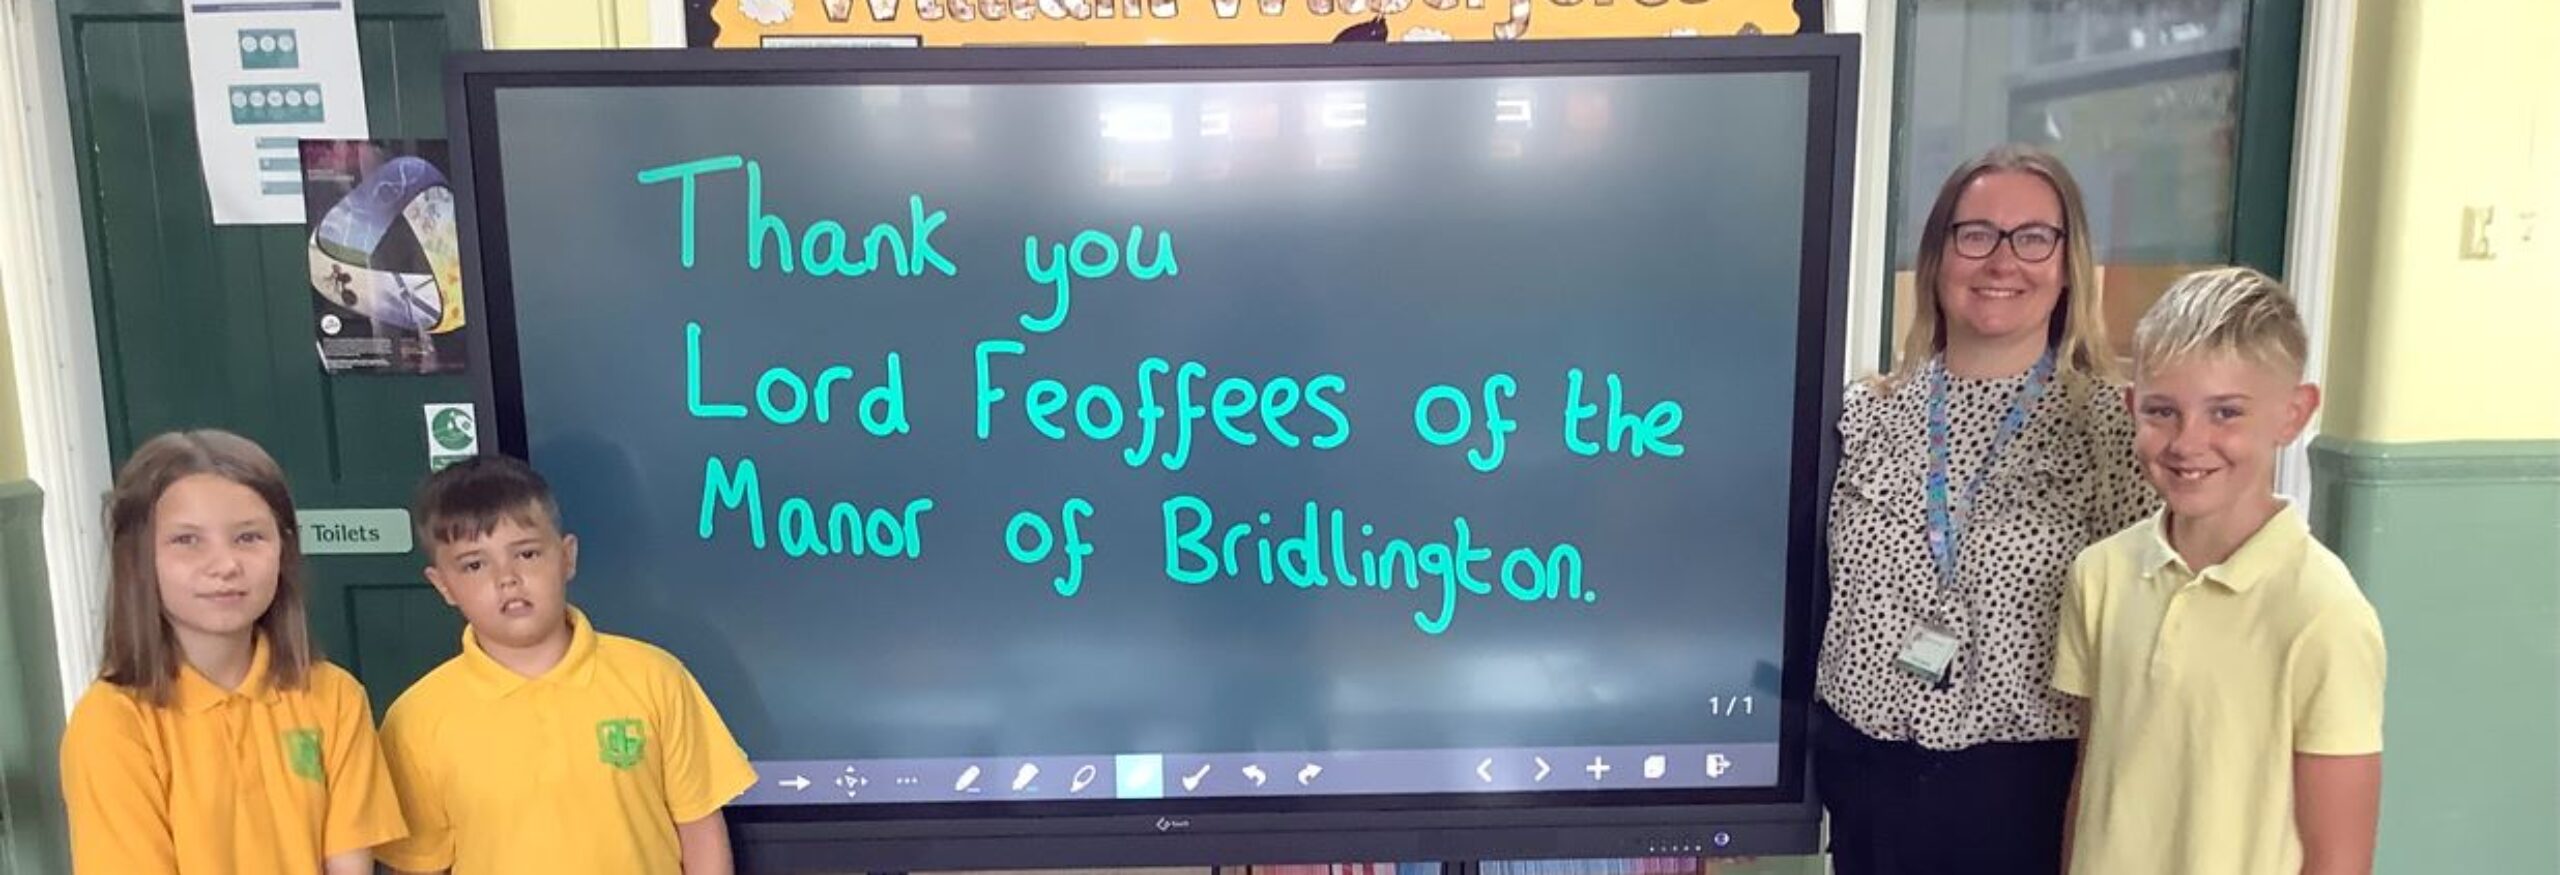 Thank you
Lord Feoffees of the
Manor of Bridlington.
Toilets
1/1